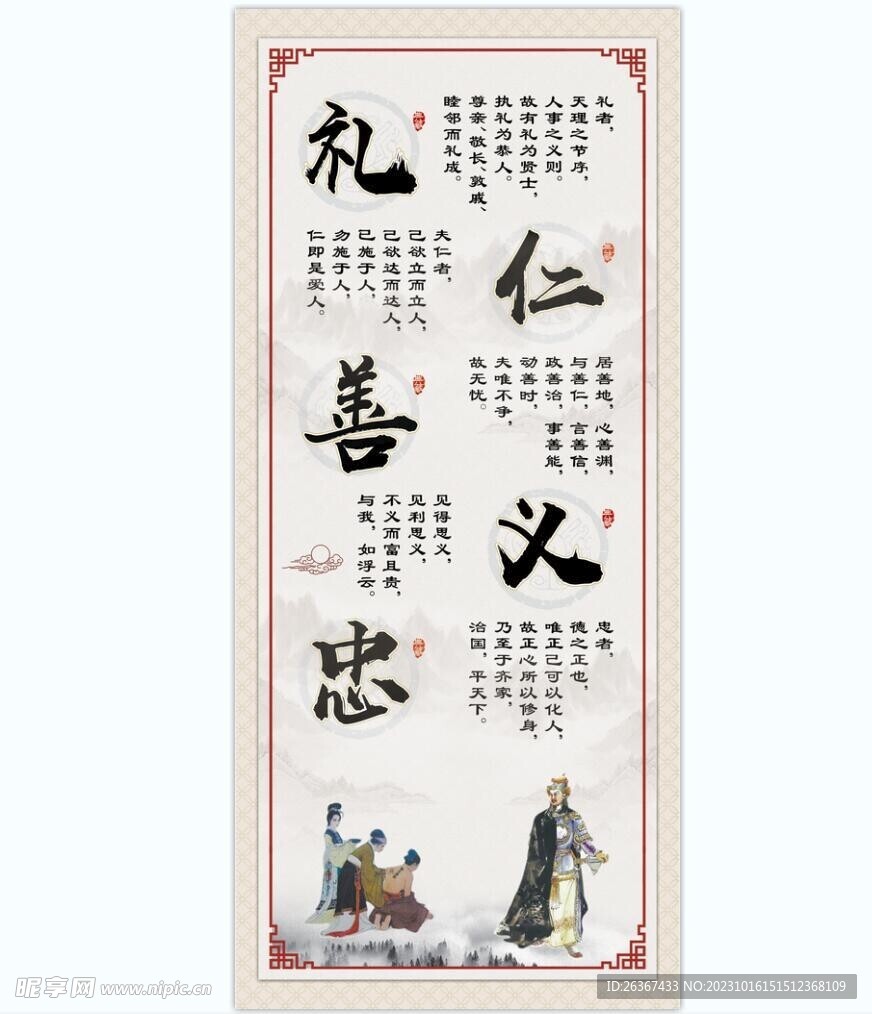 礼
礼者，
天理之节序，
人事之义则。
故有礼为贤士，
执礼为恭人。
尊亲、敬长、敦戚、
睦邻而礼成。
仁
夫仁者，
己欲立而立人，
己欲达而达人，
己施于人，
勿施于人，
仁即是爱人。
善
居善地，心善渊，
与善仁，言善信，
政善治，事善能，
动善时，
夫唯不争，
故无忧。
义
见得思义，
见利思义，
不义而富且贵，
与我，如浮云。
忠
忠者，
德之正也，
唯正己可以化人，
故正心所以修身，
乃至于齐家，
治国，平天下。
昵享网 www.nipic.cn
ID:26367433 NO:20231016151512368109